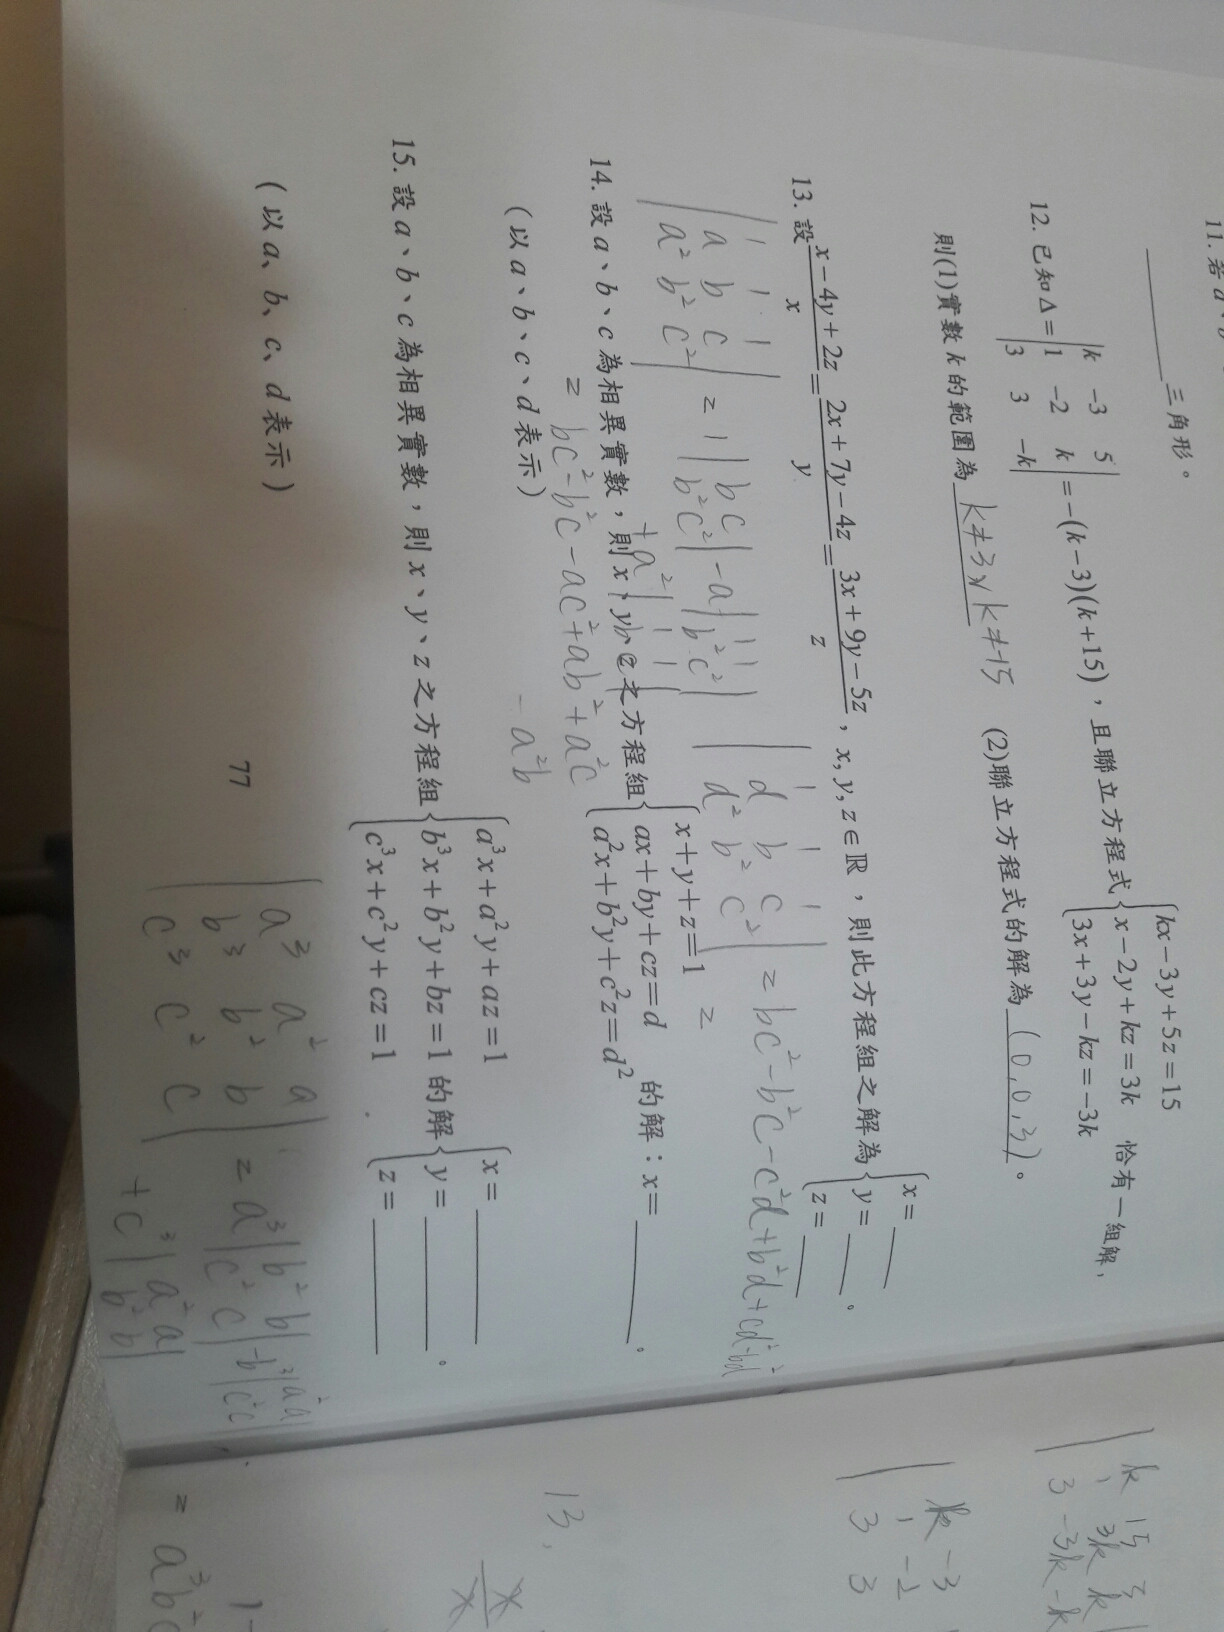 11. 若
三角形。
12. 已知 Δ = | k -3 5 |
| 1 -2 k |
| 3 3 -k | = -(k-3)(k+15), 且聯立方程式 { kx-3y+5z=15
x-2y+kz=3k
3x+3y-kz=-3k 恰有一組解,
則(1)實數 k 的範圍為 k≠3, k≠-15 (2)聯立方程式的解為 (0,0,3)。
13. 設 (x-4y+2z)/x = (2x+7y-4z)/y = (3x+9y-5z)/z, x, y, z ∈ ℝ, 則此方程組之解為 { x=____
y=____
z=____ 。
| 1 1 1 |
| a b c |
| a² b² c² | = 1 | b c |
| b² c² | -a | 1 1 |
| b² c² |
+a² | 1 1 |
| b c |
= bc²-b²c-ac²+ab²+a²c
-a²b
| 1 1 1 |
| d b c |
| d² b² c² | = bc²-b²c-c²d+b²d+cd²-bd²
=
14. 設 a、b、c 為相異實數, 則 x、y、z 之方程組 { x+y+z=1
ax+by+cz=d
a²x+b²y+c²z=d² 的解:x=____。
(以 a、b、c、d 表示)
15. 設 a、b、c 為相異實數, 則 x、y、z 之方程組 { a³x+a²y+az=1
b³x+b²y+bz=1
c³x+c²y+cz=1 的解 { x=____
y=____
z=____ 。
(以 a、b、c、d 表示)
| a³ a² a |
| b³ b² b |
| c³ c² c | = a³ | b² b |
| c² c | -b³ | a² a |
| c² c |
+c³ | a² a |
| b² b |
77
| k 15
1 3k k
3 -3k -k
| k -3
1 -2
3 3
13,
= a³b